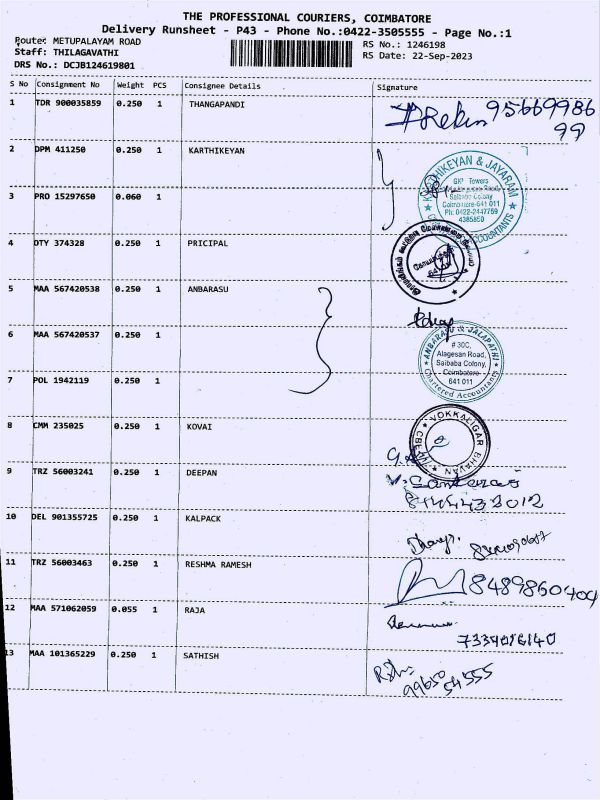 THE PROFESSIONAL COURIERS, COIMBATORE
Delivery Runsheet - P43 - Phone No.:0422-3505555 - Page No.:1
Route: METUPALAYAM ROAD
RS No.: 1246198
Staff: THILAGAVATHI
RS Date: 22-Sep-2023
DRS No.: DCJB124619801
S No Consignment No Weight PCS Consignee Details Signature
1 TDR 900035859 0.250 1 THANGAPANDI
9566998699
2 DPM 411250 0.250 1 KARTHIKEYAN
KARTHIKEYAN & JAYARAM
GKP Towers
Saibaba Colony
Coimbatore-641 011
Ph: 0422-2447759
4385850
ACCOUNTANTS
3 PRO 15297650 0.060 1
4 OTY 374328 0.250 1 PRICIPAL
5 MAA 567420538 0.250 1 ANBARASU
6 MAA 567420537 0.250 1
ANBARASU & JALAPATHI
# 30C,
Alagesan Road,
Saibaba Colony,
Coimbatore-
641 011
Chartered Accountants
7 POL 1942119 0.250 1
8 CMM 235025 0.250 1 KOVAI
VOKKALIGAR BHAVAN
9 TRZ 56003241 0.250 1 DEEPAN
10 DEL 901355725 0.250 1 KALPACK
11 TRZ 56003463 0.250 1 RESHMA RAMESH
8489860404
12 MAA 571062059 0.055 1 RAJA
7339016140
13 MAA 101365229 0.250 1 SATHISH
99650
54555